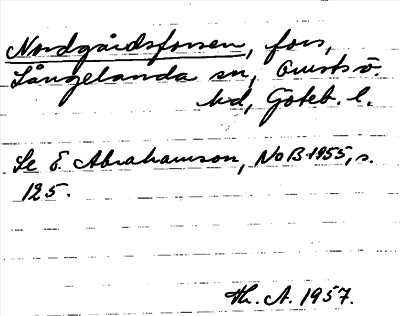 Nordgårdsforsen, fors,
Långelanda sn, Orusts ö.
hd, Göteb. l.
Se E. Abrahamson, NoB 1955, s.
125.
Th. A. 1957.